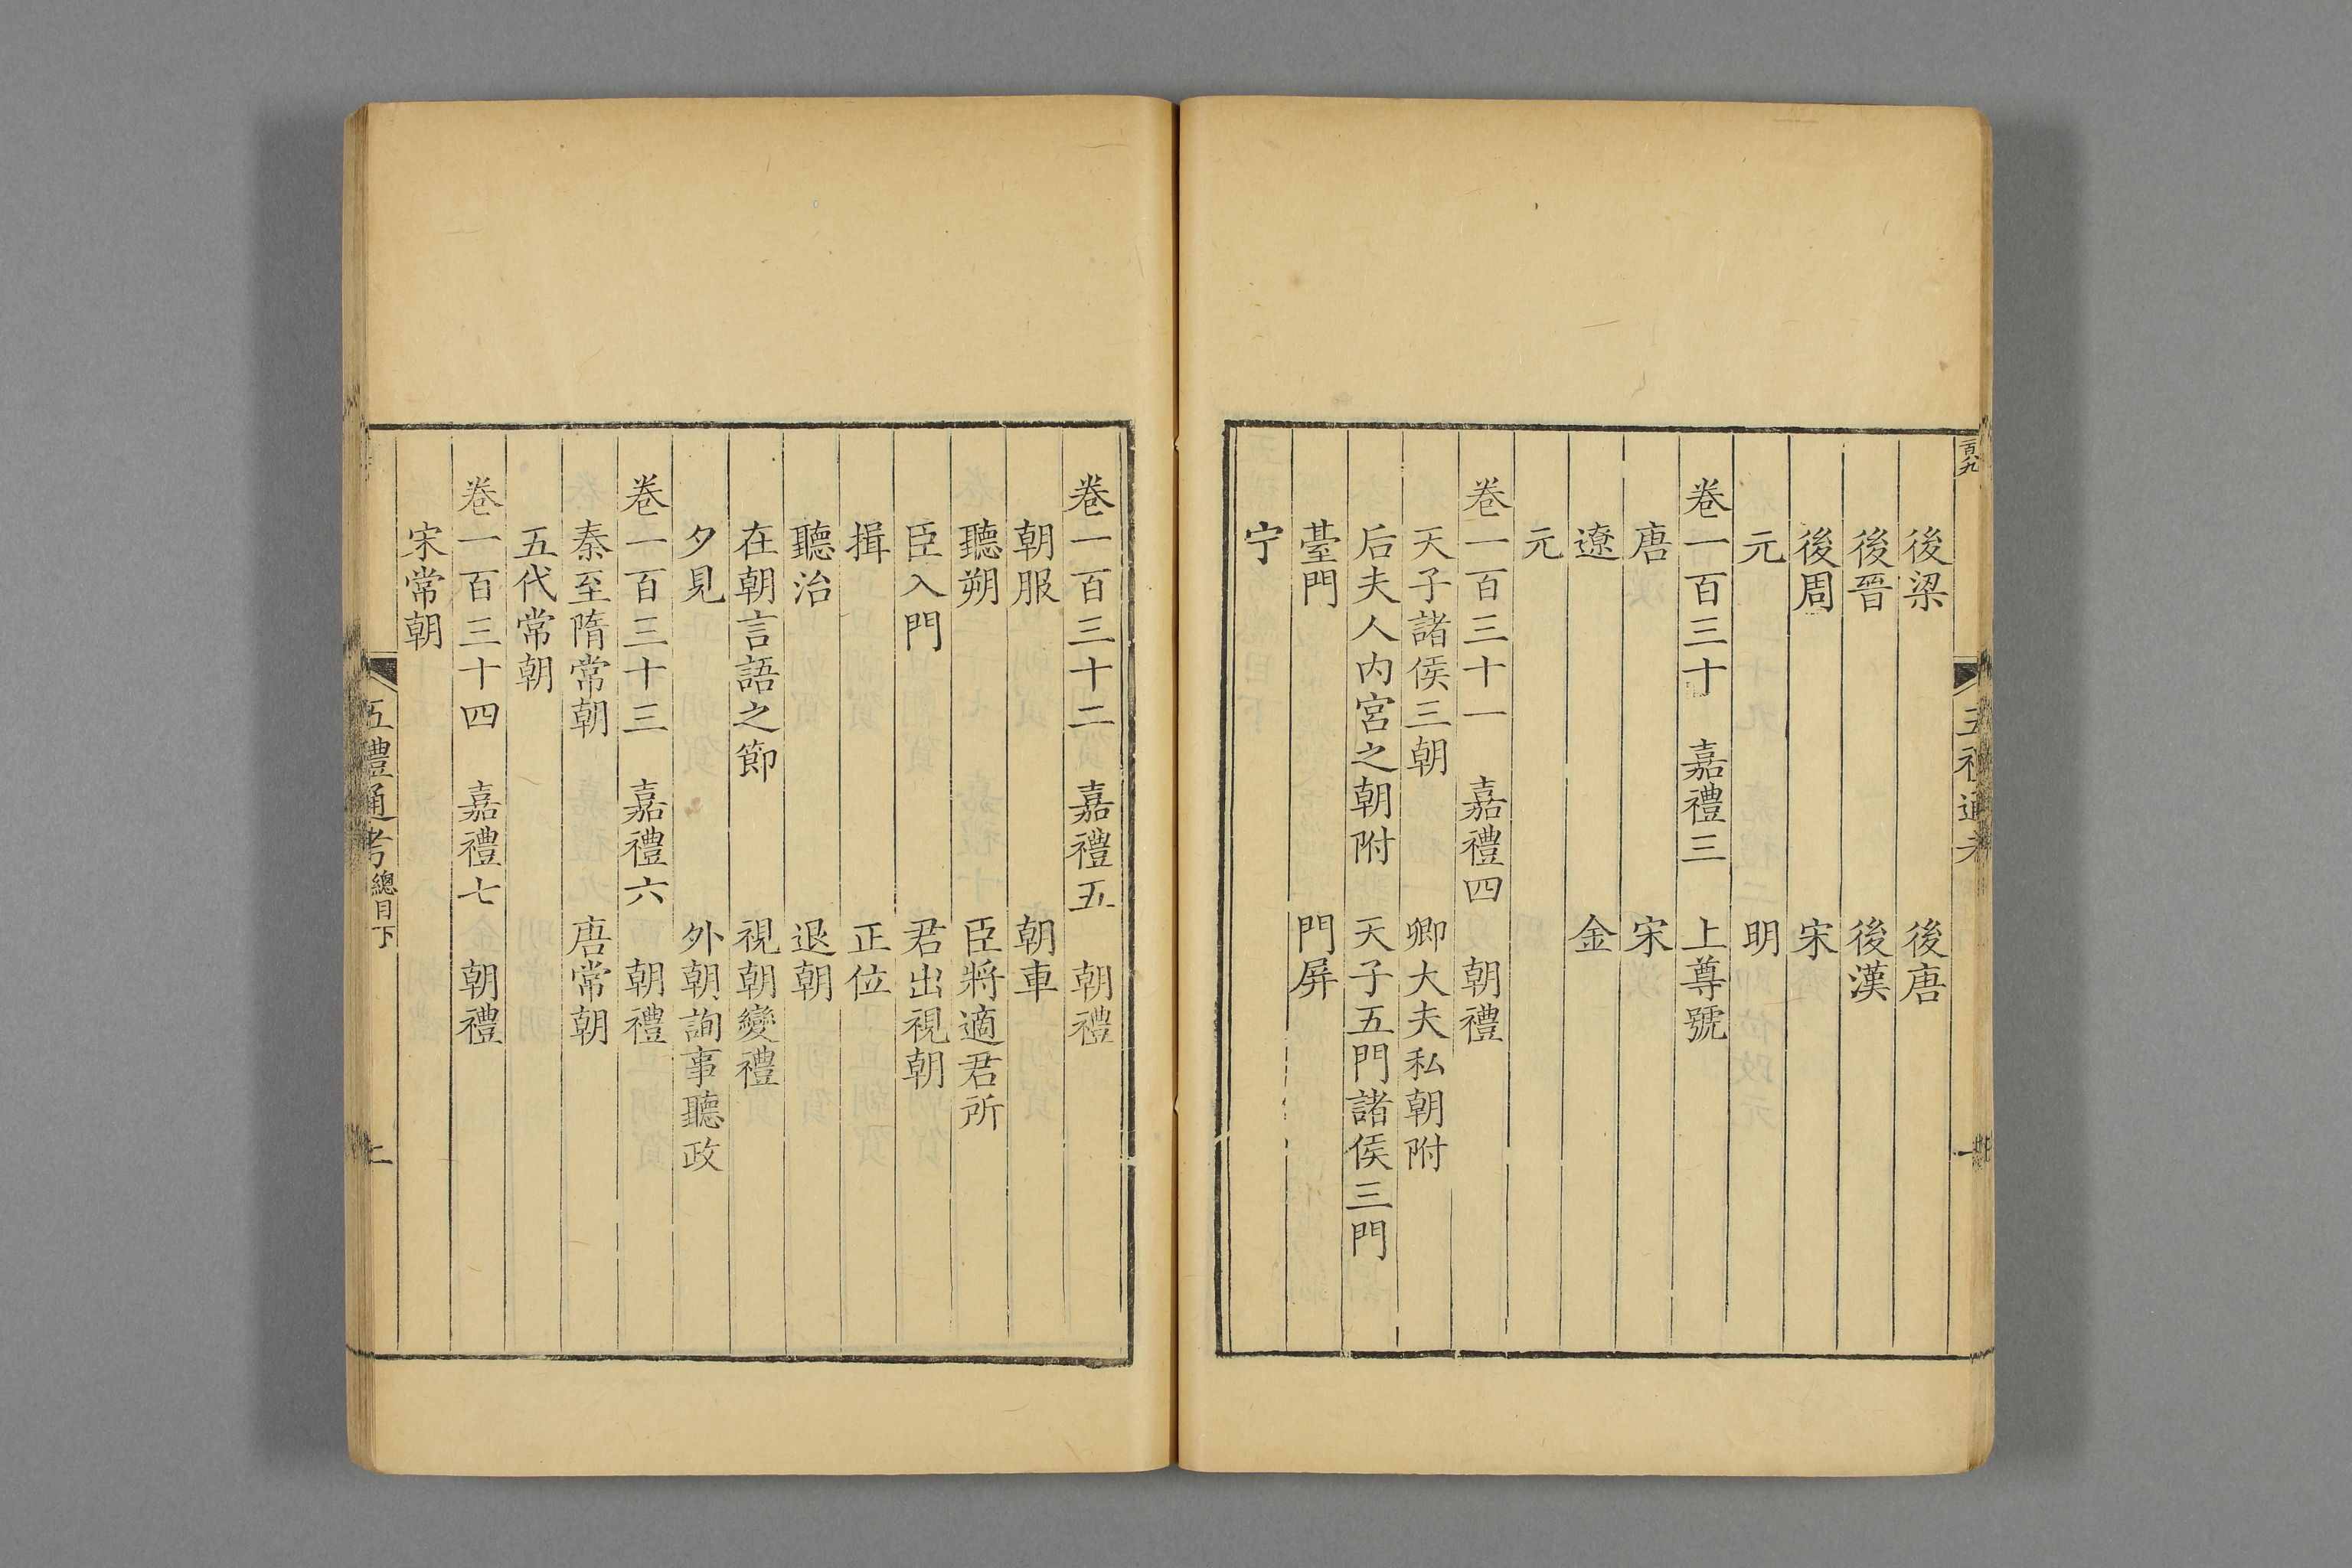 後梁　後唐
後晉　後漢
後周　宋
元　明
卷一百三十　嘉禮三　上尊號
唐　宋
遼　金
元
卷一百三十一　嘉禮四　朝禮
天子諸侯三朝　卿大夫私朝附
后夫人内宮之朝附　天子五門諸侯三門
臺門　門屏
宁
卷一百三十二　嘉禮五　朝禮
朝服　朝車
聽朔　臣將適君所
臣入門　君出視朝
揖　正位
聽治　退朝
在朝言語之節　視朝變禮
夕見　外朝詢事聽政
卷一百三十三　嘉禮六　朝禮
秦至隋常朝　唐常朝
五代常朝
卷一百三十四　嘉禮七　朝禮
宋常朝
五禮通考總目下　二